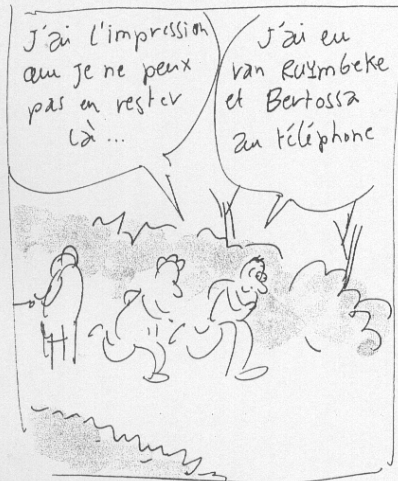 J'ai l'impression
que je ne peux
pas en rester
là...
J'ai eu
van Ruymbeke
et Bertossa
au téléphone